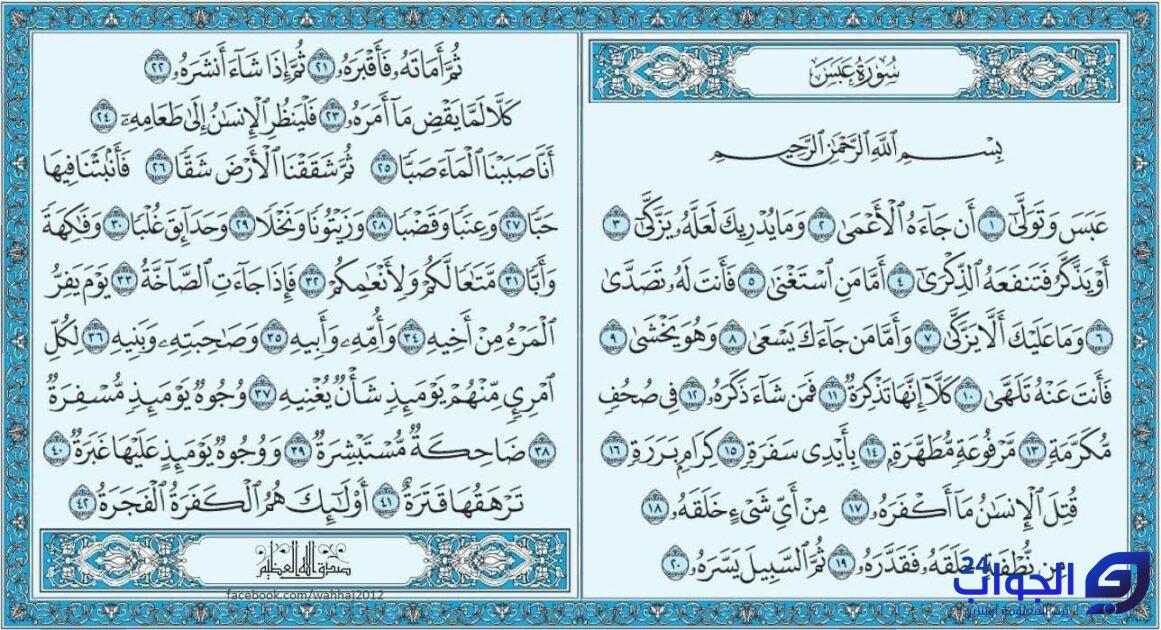 سُورَةُ عَبَسَ
بِسْمِ اللَّهِ الرَّحْمَٰنِ الرَّحِيمِ
عَبَسَ وَتَوَلَّىٰٓ ١ أَن جَآءَهُ ٱلْأَعْمَىٰ ٢ وَمَا يُدْرِيكَ لَعَلَّهُۥ يَزَّكَّىٰٓ ٣
أَوْ يَذَّكَّرُ فَتَنفَعَهُ ٱلذِّكْرَىٰٓ ٤ أَمَّا مَنِ ٱسْتَغْنَىٰ ٥ فَأَنتَ لَهُۥ تَصَدَّىٰ
٦ وَمَا عَلَيْكَ أَلَّا يَزَّكَّىٰ ٧ وَأَمَّا مَن جَآءَكَ يَسْعَىٰ ٨ وَهُوَ يَخْشَىٰ ٩
فَأَنتَ عَنْهُ تَلَهَّىٰ ١٠ كَلَّآ إِنَّهَا تَذْكِرَةٌ ١١ فَمَن شَآءَ ذَكَرَهُۥ ١٢ فِى صُحُفٍ
مُّكَرَّمَةٍ ١٣ مَّرْفُوعَةٍ مُّطَهَّرَةٍۭ ١٤ بِأَيْدِى سَفَرَةٍ ١٥ كِرَامٍۭ بَرَرَةٍ ١٦
قُتِلَ ٱلْإِنسَٰنُ مَآ أَكْفَرَهُۥ ١٧ مِنْ أَىِّ شَىْءٍ خَلَقَهُۥ ١٨
مِن نُّطْفَةٍ خَلَقَهُۥ فَقَدَّرَهُۥ ١٩ ثُمَّ ٱلسَّبِيلَ يَسَّرَهُۥ ٢٠
ثُمَّ أَمَاتَهُۥ فَأَقْبَرَهُۥ ٢١ ثُمَّ إِذَا شَآءَ أَنشَرَهُۥ ٢٢
كَلَّا لَمَّا يَقْضِ مَآ أَمَرَهُۥ ٢٣ فَلْيَنظُرِ ٱلْإِنسَٰنُ إِلَىٰ طَعَامِهِۦٓ ٢٤
أَنَّا صَبَبْنَا ٱلْمَآءَ صَبًّا ٢٥ ثُمَّ شَقَقْنَا ٱلْأَرْضَ شَقًّا ٢٦ فَأَنۢبَتْنَا فِيهَا
حَبًّا ٢٧ وَعِنَبًا وَقَضْبًا ٢٨ وَزَيْتُونًا وَنَخْلًا ٢٩ وَحَدَآئِقَ غُلْبًا ٣٠ وَفَٰكِهَةً
وَأَبًّا ٣١ مَّتَٰعًا لَّكُمْ وَلِأَنْعَٰمِكُمْ ٣٢ فَإِذَا جَآءَتِ ٱلصَّآخَّةُ ٣٣ يَوْمَ يَفِرُّ
ٱلْمَرْءُ مِنْ أَخِيهِ ٣٤ وَأُمِّهِۦ وَأَبِيهِ ٣٥ وَصَٰحِبَتِهِۦ وَبَنِيهِ ٣٦ لِكُلِّ
ٱمْرِئٍ مِّنْهُمْ يَوْمَئِذٍ شَأْنٌ يُغْنِيهِ ٣٧ وُجُوهٌ يَوْمَئِذٍ مُّسْفِرَةٌ
٣٨ ضَاحِكَةٌ مُّسْتَبْشِرَةٌ ٣٩ وَوُجُوهٌ يَوْمَئِذٍ عَلَيْهَا غَبَرَةٌ ٤٠
تَرْهَقُهَا قَتَرَةٌ ٤١ أُو۟لَٰٓئِكَ هُمُ ٱلْكَفَرَةُ ٱلْفَجَرَةُ ٤٢
صدق الله العظيم
facebook.com/wahhaj2012
الجواب 24